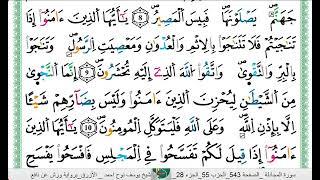 جَهَنَّمُ يَصْلَوْنَهَا فَبِيسَ اَ۬لْمَصِيرُ 8 يَٰٓأَيُّهَا اَ۬لذِينَ ءَامَنُوٓاْ إِذَا
تَنَٰجَيْتُمْ فَلَا تَتَنَٰجَوْاْ بِالِاثْمِ وَالْعُدْوَٰنِ وَمَعْصِيَتِ اِ۬لرَّسُولِ وَتَنَٰجَوْاْ
بِالْبِرِّ وَالتَّقْو۪يٰ وَاتَّقُواْ اُ۬للَّهَ اَ۬لذِےٓ إِلَيْهِ تُحْشَرُونَ 9 إِنَّمَا اَ۬لنَّجْو۪يٰ
مِنَ اَ۬لشَّيْطَٰنِ لِيُحْزِنَ اَ۬لذِينَ ءَامَنُواْ وَلَيْسَ بِضَآرِّهِمْ شَيْـًٔا
اِلَّا بِإِذْنِ اِ۬للَّهِ وَعَلَي اَ۬للَّهِ فَلْيَتَوَكَّلِ اِ۬لْمُومِنُونَ 10 يَٰٓأَيُّهَا اَ۬لذِينَ
ءَامَنُوٓاْ إِذَا قِيلَ لَكُمْ تَفَسَّحُواْ فِے اِ۬لْمَجْلِسِ فَافْسَحُواْ يَفْسَحِ
سورة المجادلة _ الصفحة 543 _الحزب 55_الجزء 28 الشيخ يوسف نوح احمد _الأزرق_برواية ورش عن نافع